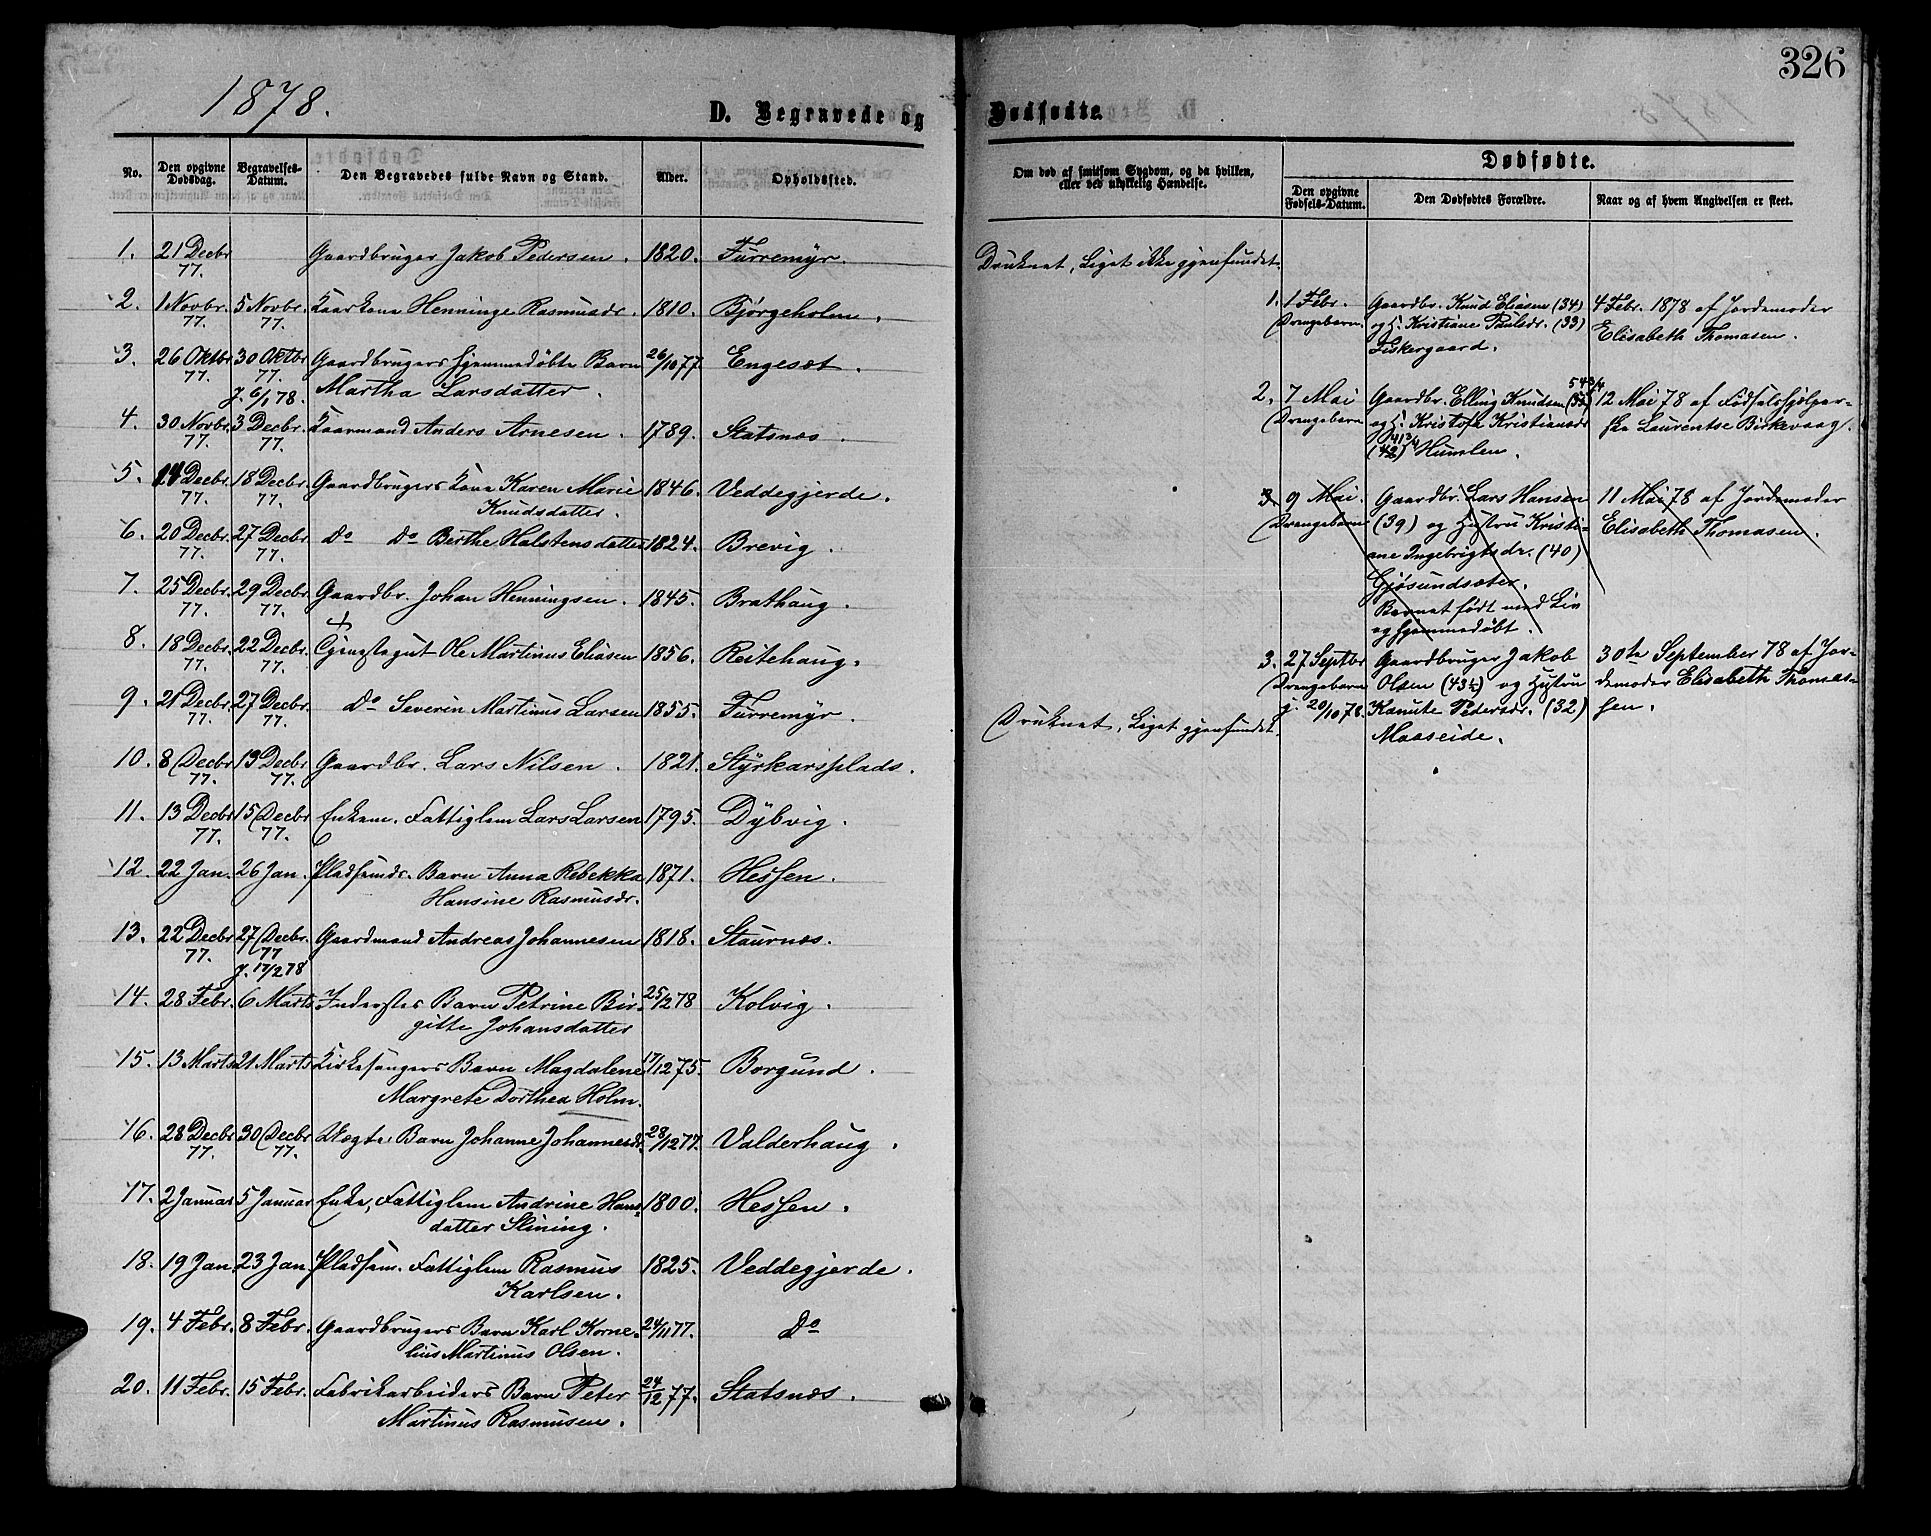 326
1878.
D. Begravede og Dødfødte.
No. Den opgivne Dødsdag. Begravelses-Datum. Den Begravedes fulde Navn og Stand. Alder. Opholdssted.
1. 21 Decbr 77. Gaardbruger Jakob Pedersen. 1820. Furremyr.
2. 1 Novbr. 77. 5 Novbr. 77. Kaarkone Henninge Rasmusdr. 1810. Bjørgeholm.
3. 26 Oktbr. 77. 30 Oktbr 77. J. 6/1 78. Gaardbrugers hjemmedøbte Barn 26/10 77 Engeset.
Martha Larsdatter.
4. 30 Novbr. 77. 3 Decbr. 77. Kaarmand Anders Arnesen. 1789. Statsnæs.
5. 14 Decbr. 77. 18 Decbr. 77. Gaardbrugers Kone Karen Marie 1846. Veddegjerde.
Knudsdatter.
6. 20 Decbr. 77. 27 Decbr. 77. Do Do Berthe Halstensdatter 1824. Brevig.
7. 25 Decbr. 77. 29 Decbr. 77. Gaardbr. Johan Henningsen. 1845. Brathaug.
8. 18 Decbr. 77. 22 Decbr. 77. Tjenestegut Ole Martinus Eliasen 1856. Reitehaug.
9. 21 Decbr 77. 27 Decbr. 77. Do Severin Martinus Larsen 1855. Furremyr.
10. 8 Decbr 77. 13 Decbr 77. Gaardbr. Lars Nilsen. 1821. Styrkarsplads.
11. 13 Decbr 77. 15 Decbr 77. Enkem. Fattiglem Lars Larsen 1795. Dybvig.
12. 22 Jan. 26 Jan. Pladsmds. Barn Anna Rebekka 1871. Hessen.
Hansine Rasmusdr.
13. 22 Decbr 77. 27 Decbr. 77 J. 17/2 78 Gaardmand Andreas Johannesen 1818. Staurnæs.
14. 28 Febr. 6 Marts Inderstes Barn Petrine Bir- 25/2 78 Kolvig.
gitte Johansdatter
15. 13 Marts 21 Marts Kirkesangers Barn Magdalene 17/12 75. Borgund.
Margrete Dorthea Holm.
16. 28 Decbr 77. 30 Decbr 77. Uægte. Barn Johanne Johannesdr. 28/12 77. Valderhaug.
17. 2 Januar 5 Januar Enke, Fattiglem Andrine Hans- 1800. Hessen.
datter Slining.
18. 19 Jan. 23 Jan. Pladsem. Fattiglem Rasmus 1825. Veddegjerde.
Karlsen.
19. 4 Febr. 8 Febr. Gaardbrugers Barn Karl Korne- 24/11 77. Do
lius Martinus Olsen.
20. 11 Febr. 15 Febr. Fabrikarbeiders Barn Peter 24/12 77. Statsnæs.
Martinus Rasmusen.
Om død af smitsom Sygdom, og da hvilken, eller ved ulykkelig Hændelse.
Dødfødte.
Den opgivne Fødsels-Datum. Den Dødfødtes Forældre. Naar og af hvem Angivelsen er skeet.
Druknet, Liget ikke gjenfundet.
1. 1 Febr. Gaardbr. Knud Eliasen (34) 4 Febr. 1878 af Jordemoder
Drengebarn. og H. Kristiane Paulsdr. (33) Elisabeth Thomasen.
Fiskergaard.
2. 7 Mai Gaardbr. Elling Knudsen 54 3/4 12 Mai 78 af Fødselshjælper-
Drengebarn og H. Kristofa Kristiansdr ske Laurentse Birkevaag.
41 3/4
(42) Humlen.
3. 9 Mai. Gaardbr. Lars Hansen 11 Mai 78 af Jordemoder
Drengebarn (39) og Hustru Kristi- Elisabeth Thomasen.
ane Ingebrigtsdr. (40)
Gjøsundsæter.
Barnet født med Liv
og hjemmedøbt.
3. 27 Septbr Gaardbruger Jakob 30te September 78 af Jor-
Drengebarn Olsen (43 1/2) og Hustru demoder Elisabeth Thomas-
J. 20/10 78. Kanute Pedersdr. (32) sen.
Maaseide.
Druknet, Liget gjenfundet.